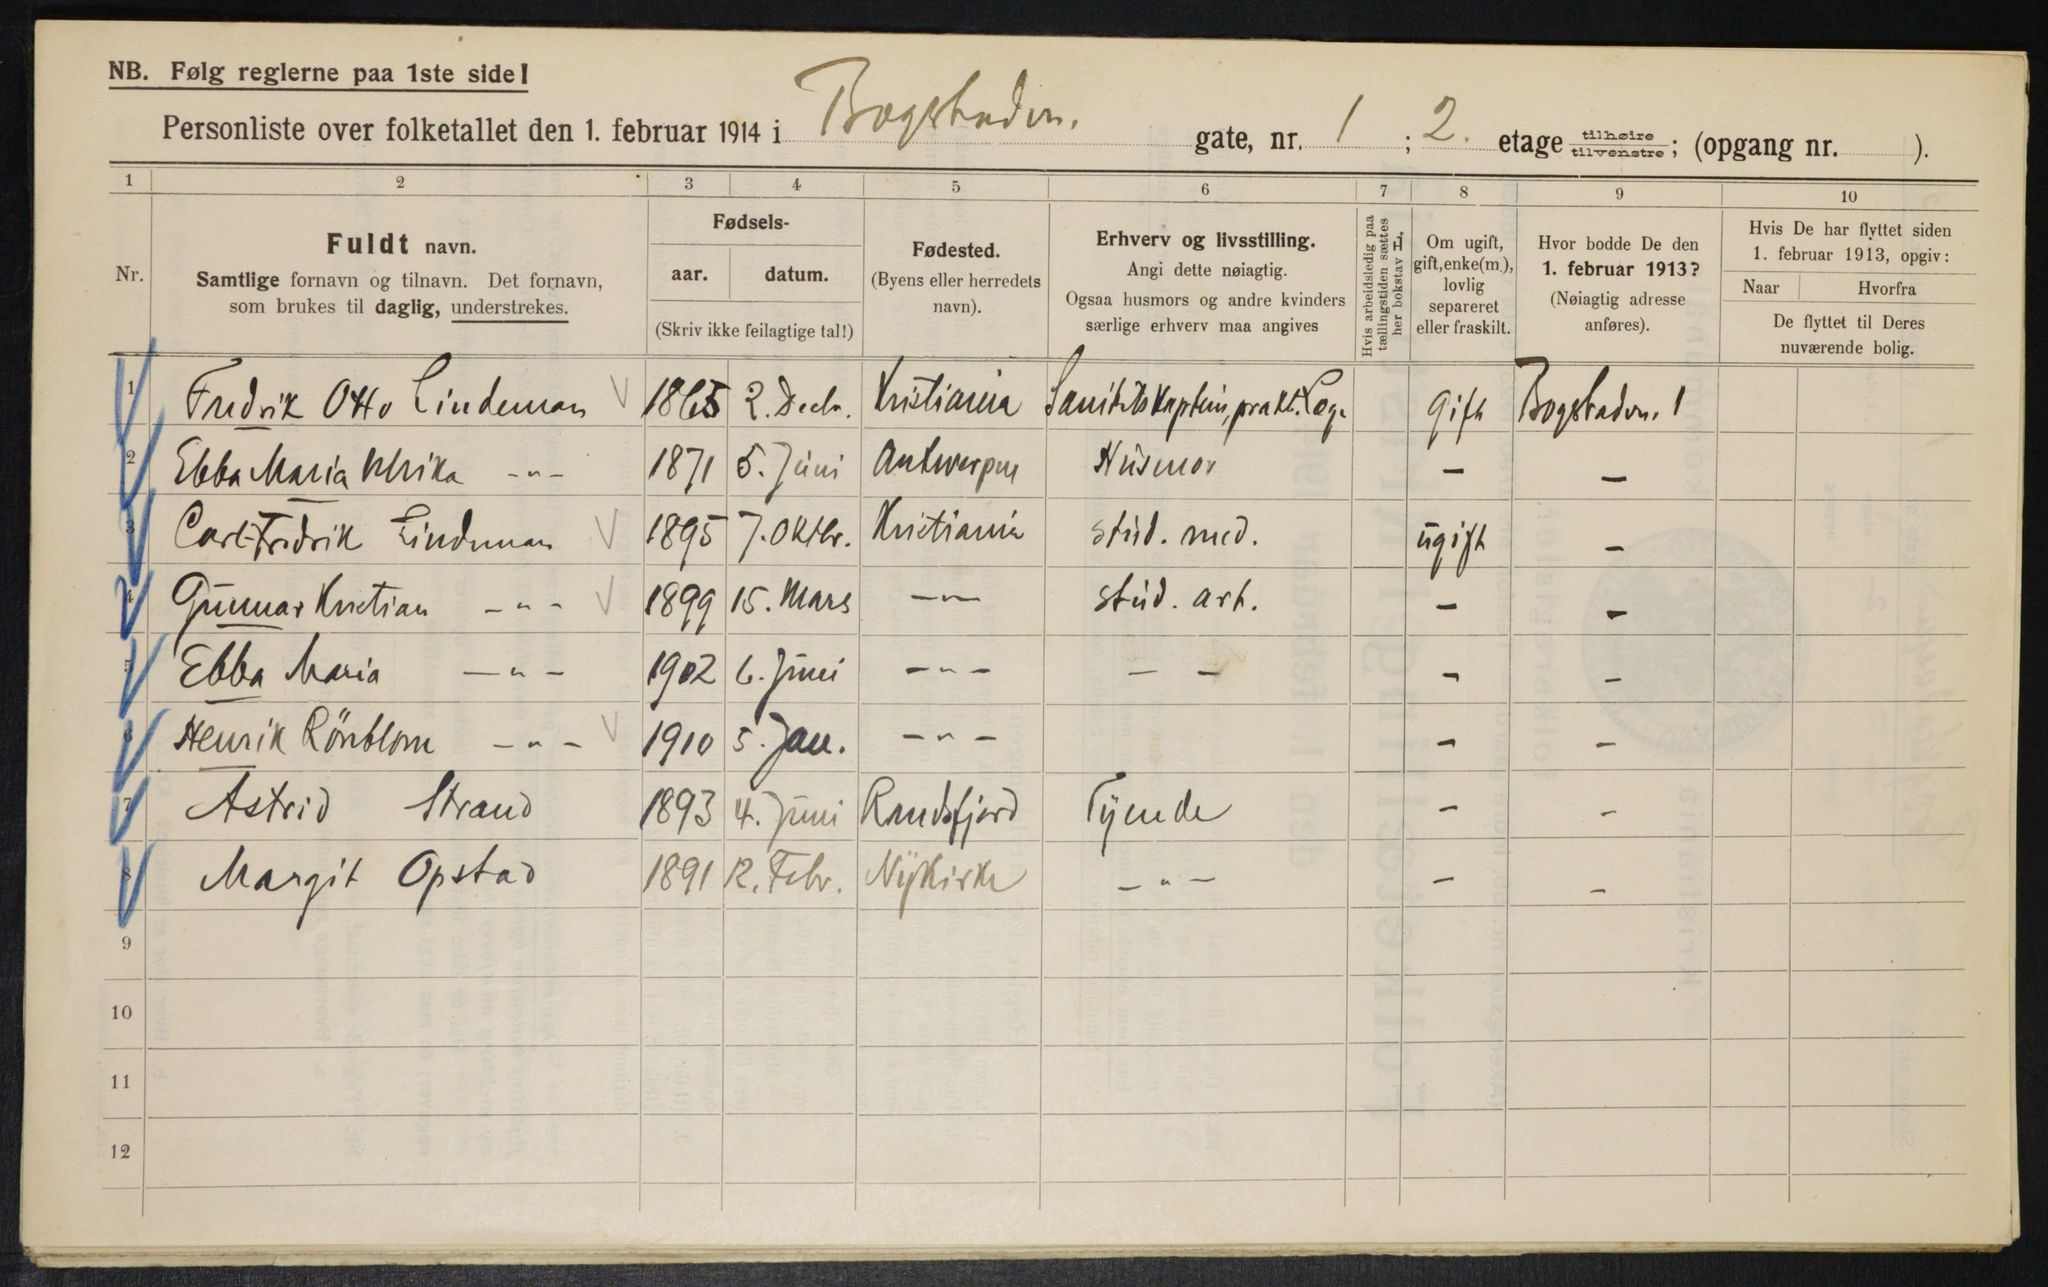 NB. Følg reglerne paa 1ste side!
Personliste over folketallet den 1. februar 1914 i Bogstadvn. gate, nr. 1 ; 2. etage tilhøire tilvenstre ; (opgang nr. ).
1 2 3 4 5 6 7 8 9 10
Nr.
Fuldt navn.
Samtlige fornavn og tilnavn. Det fornavn,
som brukes til daglig, understrekes.
Fødsels-
aar. datum.
(Skriv ikke feilagtige tal!)
Fødested.
(Byens eller herredets
navn).
Erhverv og livsstilling.
Angi dette nøiagtig.
Ogsaa husmors og andre kvinders
særlige erhverv maa angives
Hvis arbeidsledig paa
tællingstiden sættes
her bokstav L.
Om ugift,
gift, enke(m.),
lovlig
separeret
eller fraskilt.
Hvor bodde De den
1. februar 1913?
(Nøiagtig adresse
anføres).
Hvis De har flyttet siden
1. februar 1913, opgiv:
Naar Hvorfra
De flyttet til Deres
nuværende bolig.
1 Fredrik Otto Lindeman 1865 2. Decbr. Kristiania Sanitetskaptein, prakt. Læge gift Bogstadvn. 1
2 Ebba Maria Ulrika -"- 1871 5. Juni Antwerpen Husmor - -
3 Carl Fredrik Lindeman 1895 7. Oktbr. Kristiania stud. med. ugift -
4 Gunnar Kristian -"- 1899 15. Mars -"- stud. art. - -
5 Ebba Maria -"- 1902 6. Juni -"- - - - -
6 Henrik Rönblom -"- 1910 5. Jan. -"- - -
7 Astrid Strand 1893 4. Juni Randsfjord Tyende - -
8 Margit Opstad 1891 12. Febr. Nykirke -"- - -
9
10
11
12